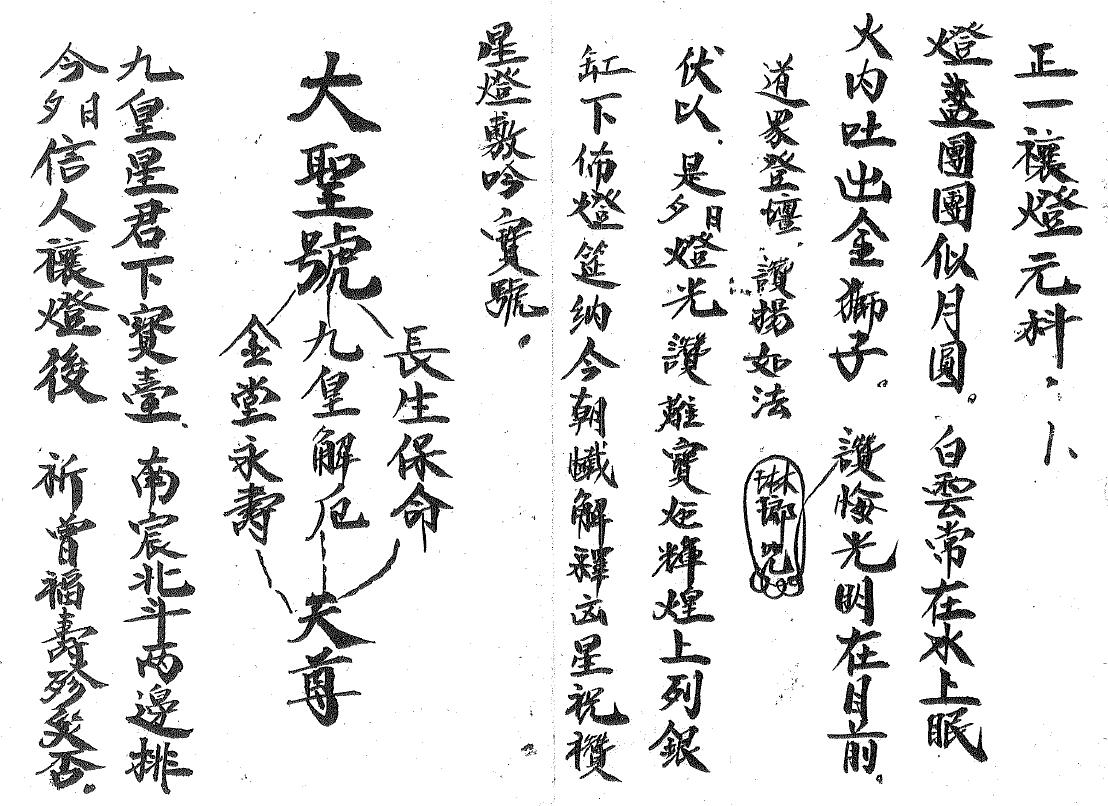 正一禳燈元科.
燈盞團團似月圓。白雲常在水上眠
火內吐出金獅子。讚悔光明在目前.
道眾登壇.讚揚如法 琳瑯
伏以.是夕日燈光讚離寶炬輝煌上列銀
缸下佈燈筵納今朝懺解釋凶星祝讚
星燈敷吟寶號.
長生保命
大聖號九皇解厄天尊
金堂永壽
九皇星君下寶臺.南宸北斗兩邊排
今夕日信人禳燈後 祈曾福壽殄災否.